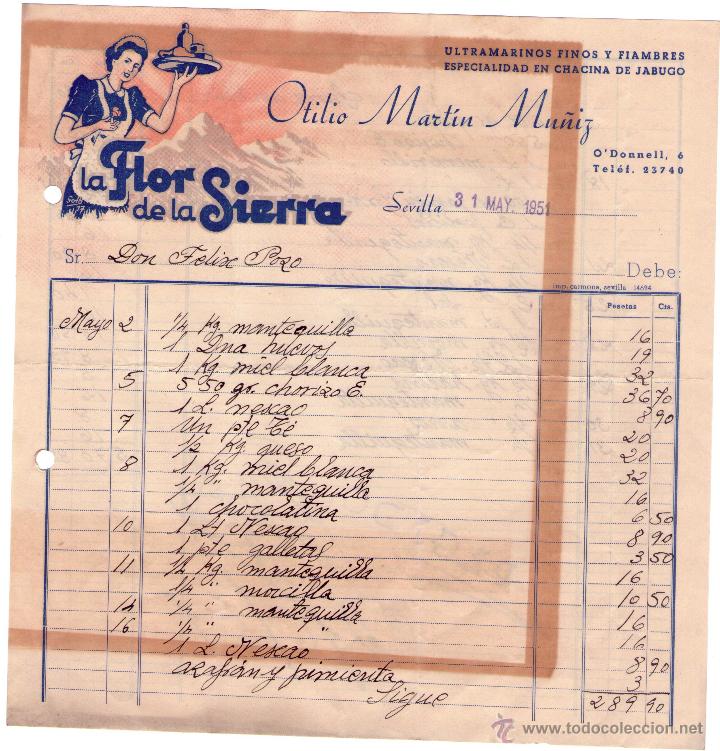 ULTRAMARINOS FINOS Y FIAMBRES
ESPECIALIDAD EN CHACINA DE JABUGO
Otilio Martín Muñiz
O'Donnell, 6
Teléf. 23740
La Flor
de la Sierra
Sevilla 31 MAY. 1951
Sr. Don Felix Pozo Debe:
imp. carmona, sevilla 14694
Pesetas Cts.
Mayo 2 1/4 Kg mantequilla 16
1 Dna huevos 19
1 Kg miel blanca 32
5 550 gr. chorizo E. 36 70
1 L. nescao 8 90
7 Un pte té 20
1/2 Kg queso 20
8 1 Kg. miel blanca 32
1/4 " mantequilla 16
1 chocolatina 6 50
10 1 Lt Nescao 8 90
1 pte galletas 3 50
11 1/4 Kg mantequilla 16
1/4 " morcilla 10 50
14 1/4 " mantequilla 16
16 1/4 " " 16
1 L. Nescao 8 90
azafrán y pimienta 3
Sigue 289 90
www.todocoleccion.net